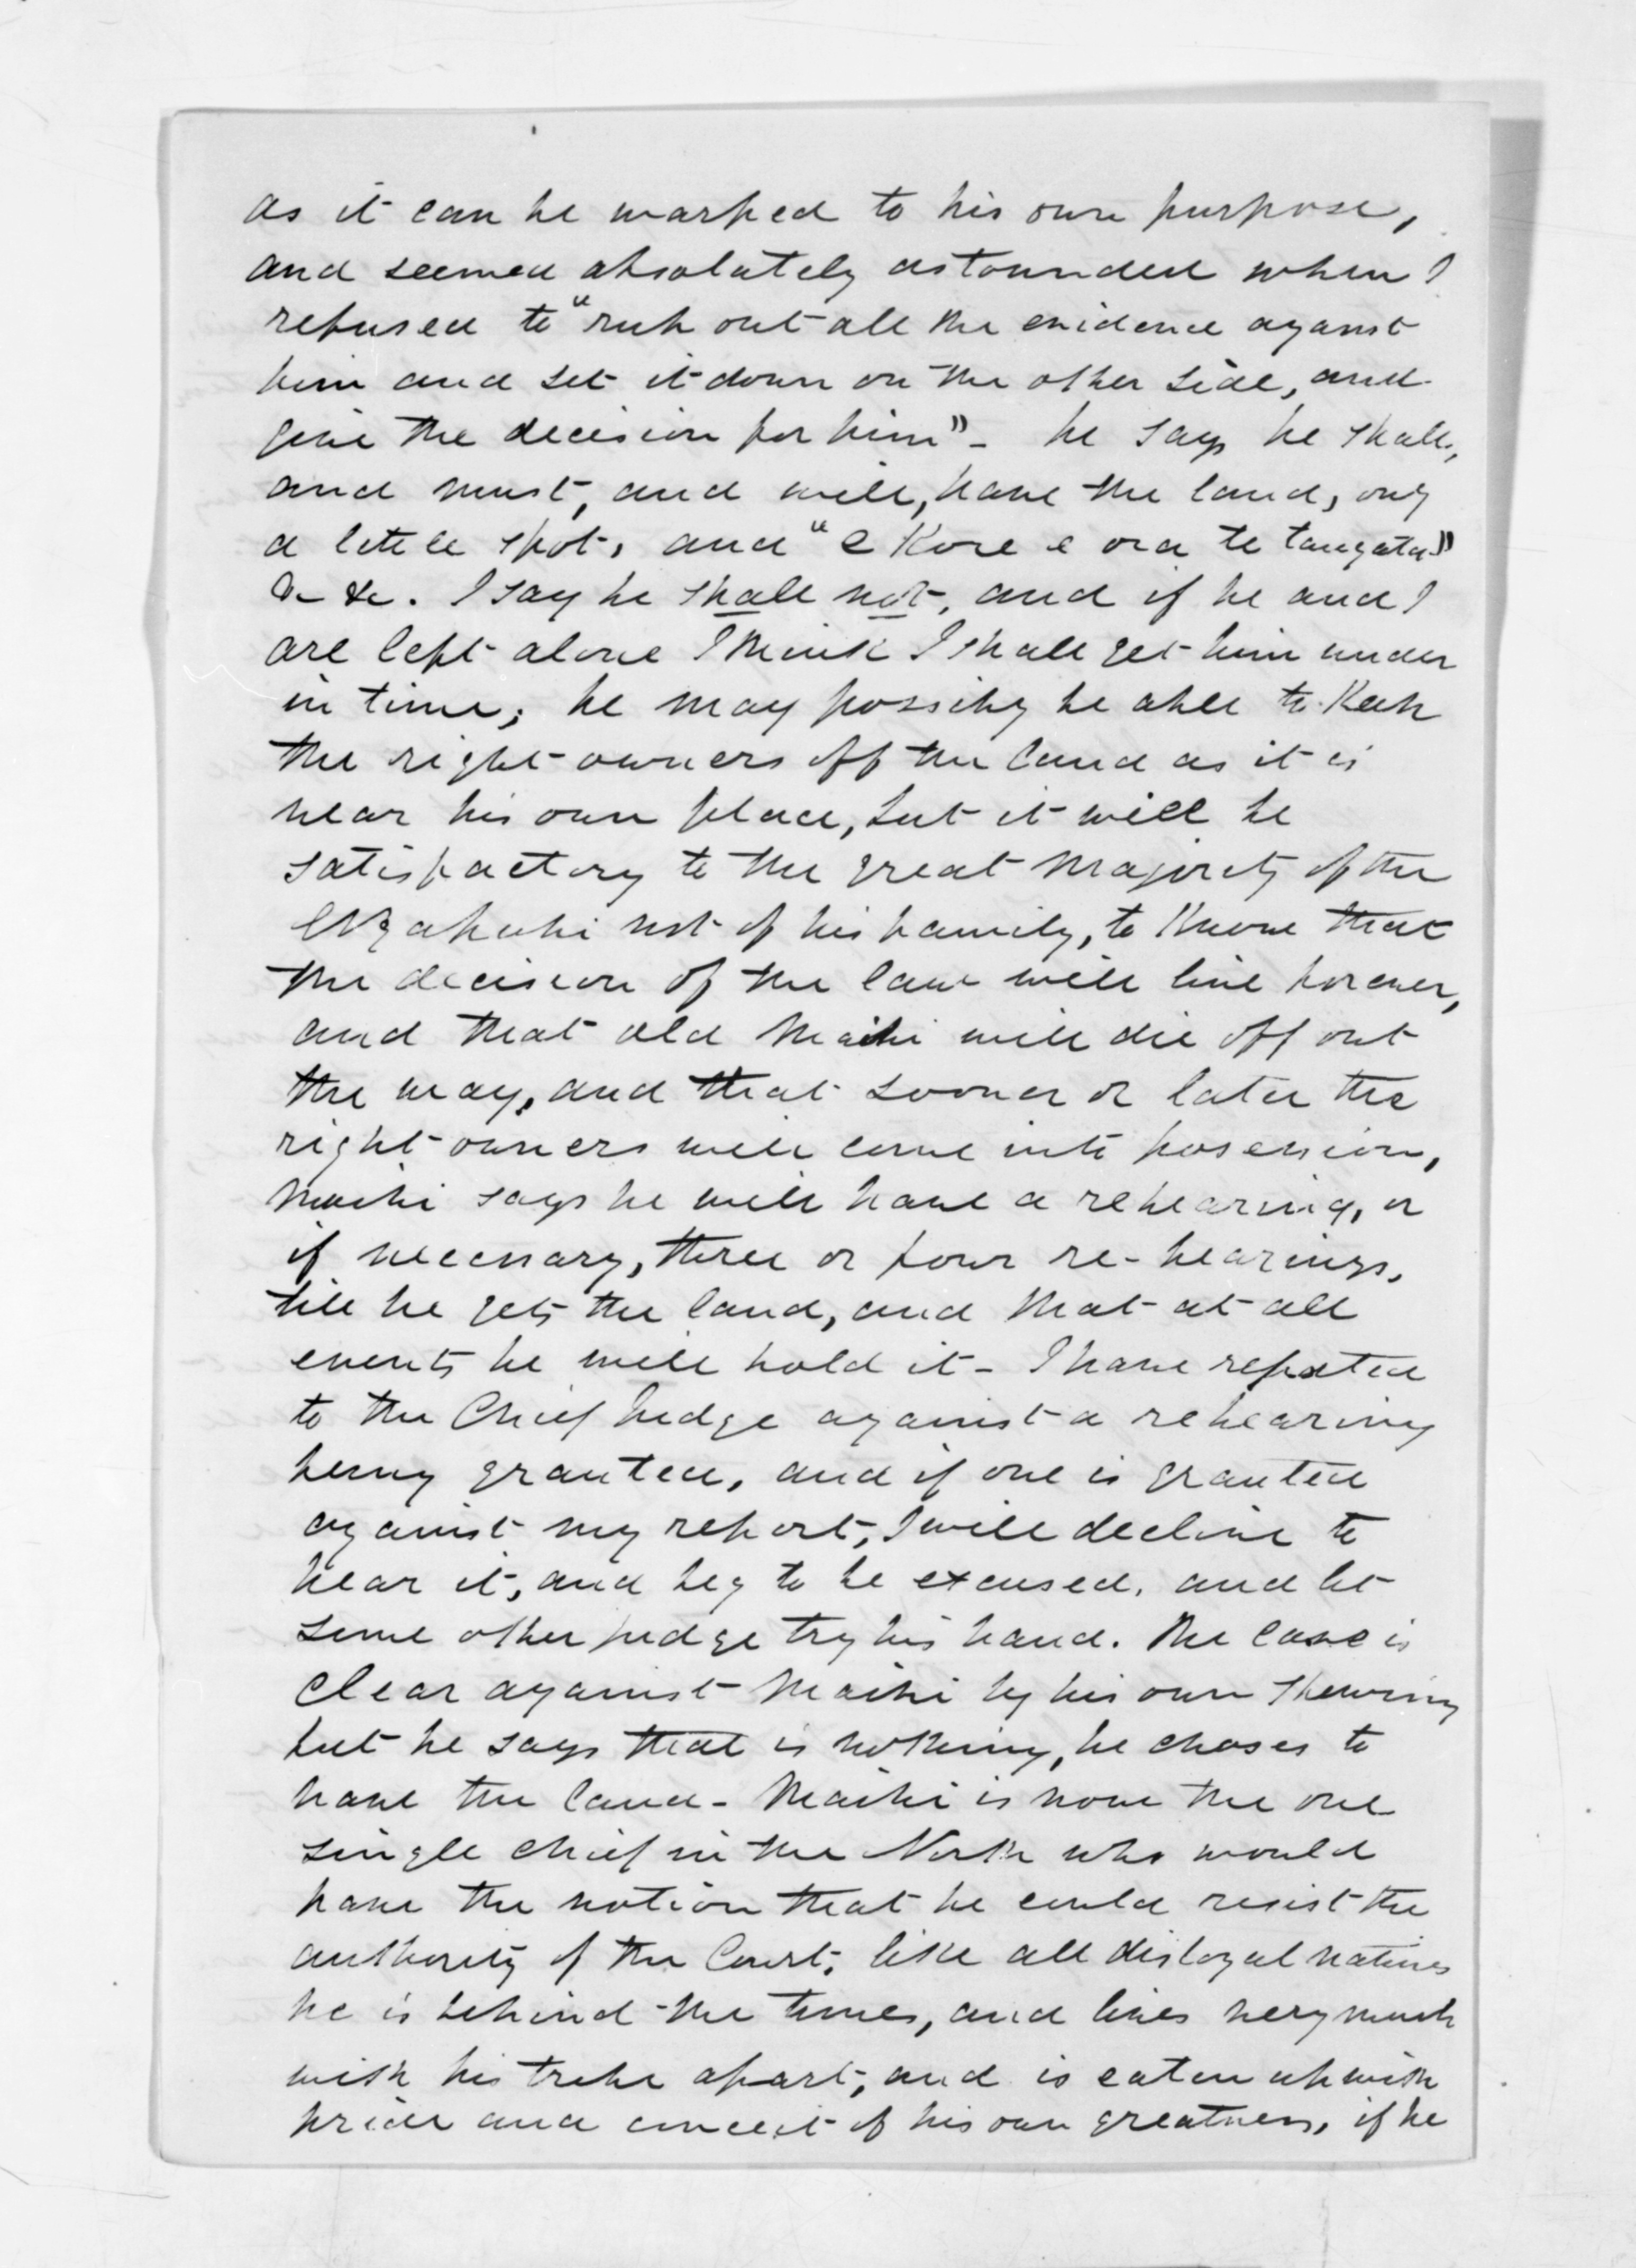 as it can be warped to his own purpose,
and seemed absolutely astounded when I
refused to "rub out all the evidence against
him and set it down on the other side, and
give the decision for him" - he says he shall,
and must, and will, have the land, only
a little spot, and "e Kore e ora te tangata"
&c &c. I say he shall not, and if he and I
are left alone I think I shall get him under
in time; he may possibly be able to Keep
the right owners off the land as it is
near his own place, but it will be
satisfactory to the great majority of the
Ngapuhi not of his family, to Know that
the decision of the law will live forever,
and that old Maihi will die off out
the way, and that sooner or later the
right owners will come into posession,
Maihi says he will have a rehearing, or
if necessary, three or four re-hearings,
till he gets the land, and that at all
events he will hold it - I have reported
to the Chief Judge against a rehearing
being granted, and if one is granted
against my report, I will decline to
hear it, and beg to be excused, and let
some other judge try his hand. The case is
clear against Maihi by his own shewing
but he says that is nothing, he choses to
have the land - Maihi is now the one
single chief in the North who would
have the notion that he could resist the
authority of the Court, like all disloyal natives
he is behind the times, and lives very much
with his tribe apart, and is eaten up with
pride and conceit of his own greatness, if he